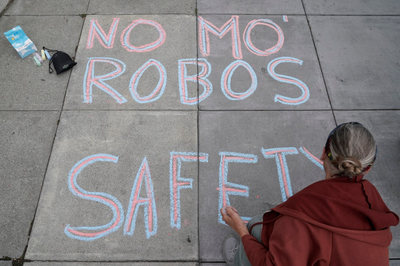 NO MO'
ROBOS
SAFETY